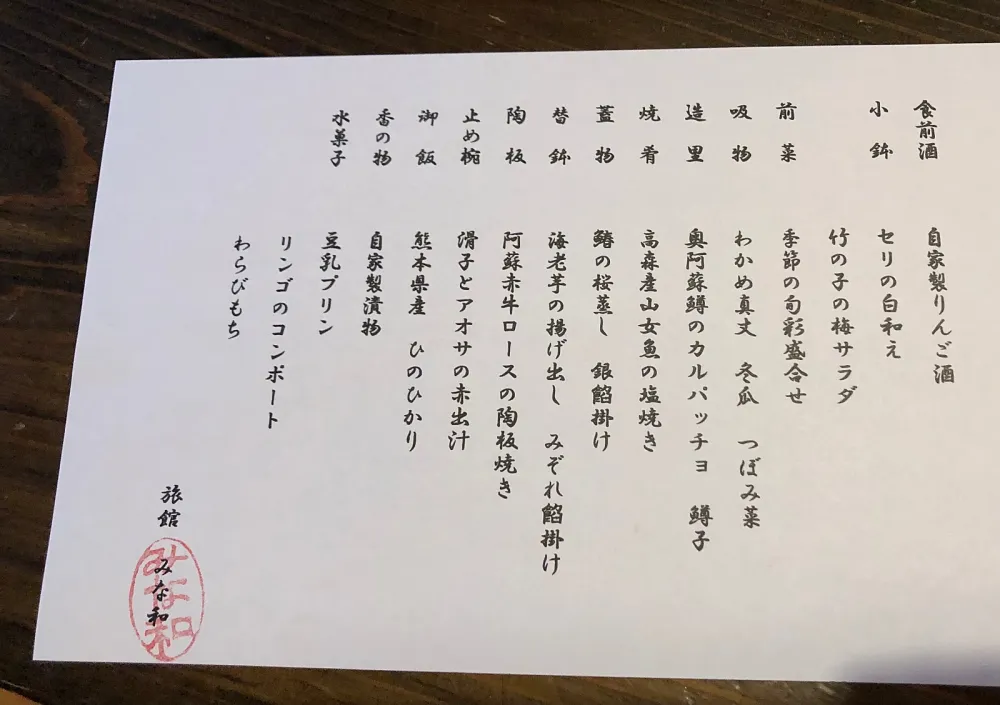 食前酒 自家製りんご酒
小鉢 セリの白和え
竹の子の梅サラダ
前菜 季節の旬彩盛合せ
吸物 わかめ真丈 冬瓜 つぼみ菜
造里 奥阿蘇鱒のカルパッチョ 鱒子
焼肴 高森産山女魚の塩焼き
蓋物 鰆の桜蒸し 銀餡掛け
替鉢 海老芋の揚げ出し みぞれ餡掛け
陶板 阿蘇赤牛ロースの陶板焼き
止め椀 滑子とアオサの赤出汁
御飯 熊本県産 ひのひかり
香の物 自家製漬物
水菓子 豆乳プリン
リンゴのコンポート
わらびもち
旅館 みな和
みな和